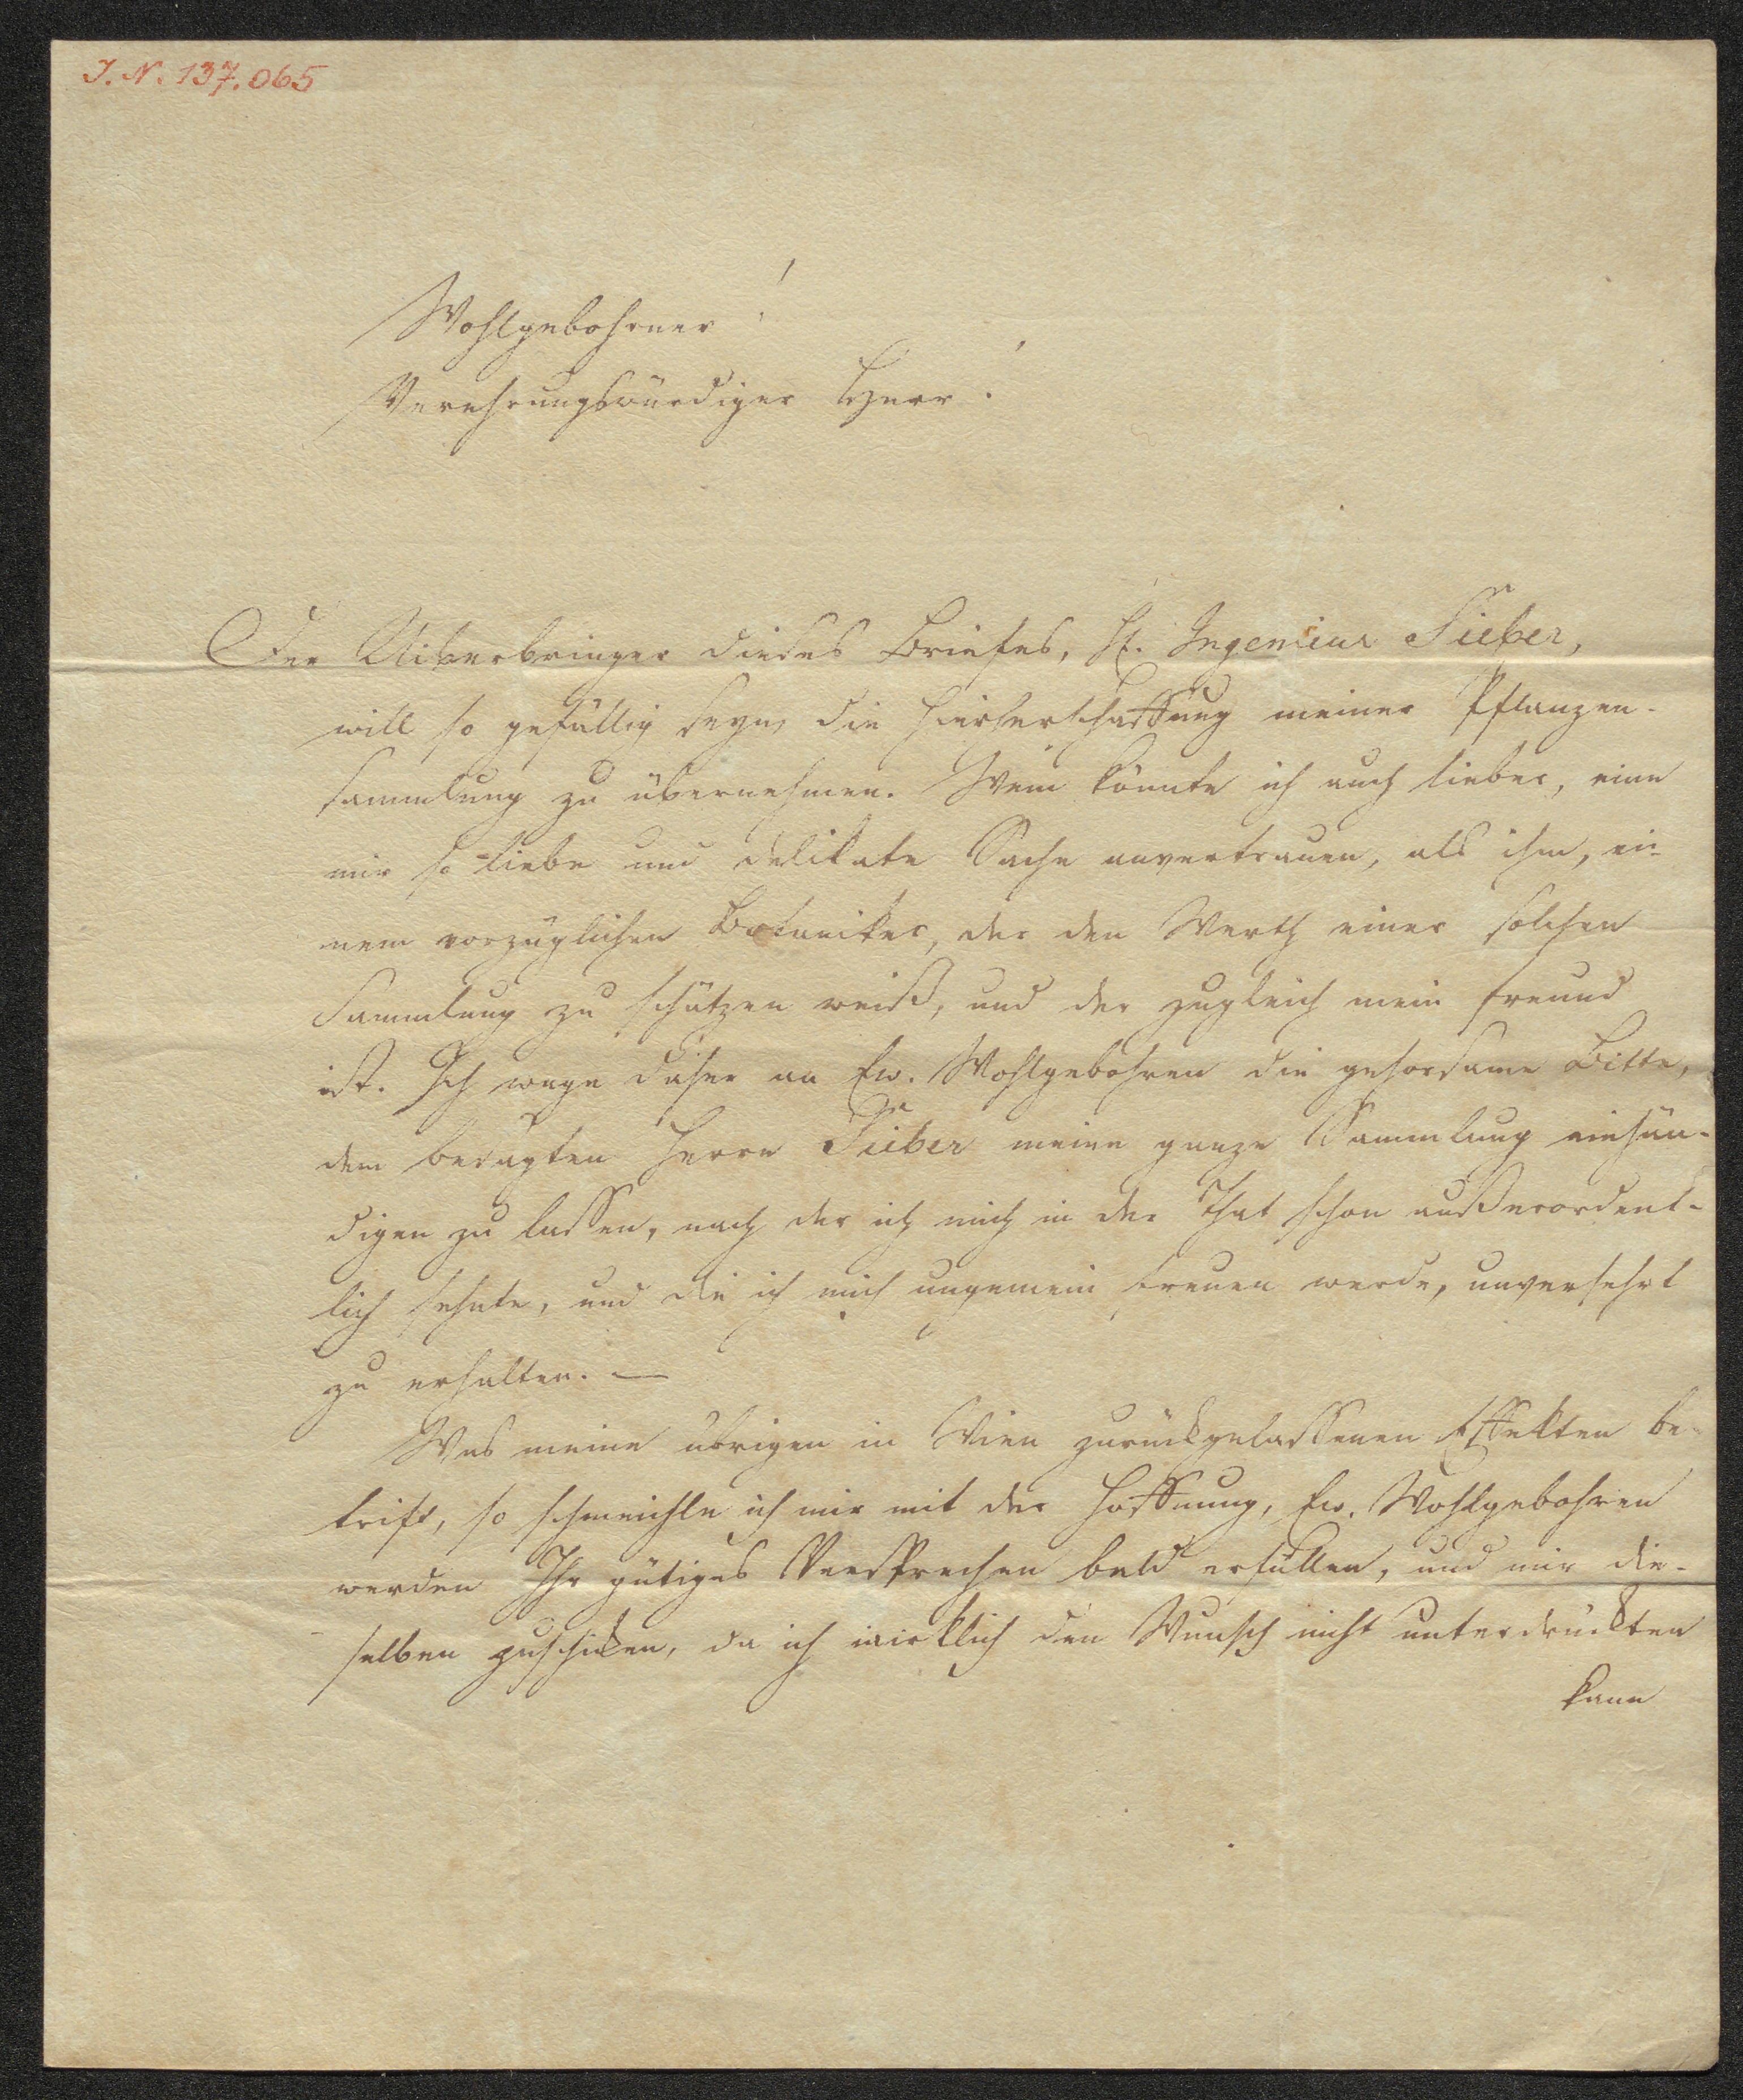 J. N. 137.065
Wohlgebohrner!
Verehrungswürdiger Herr!
Der Uiberbringer dieses Briefes, H. Ingenieur Sieber,
will so gefällig seyn, die Hieherschaffung meiner Pflanzen-
sammlung zu übernehmen. Wem könnte ich auch lieber, eine
mir so liebe und delikate Sache anvertrauen, als ihm, ei-
nem vorzüglichen Botaniker, der den Werth einer solchen
Sammlung zu schätzen weiß, und der zugleich mein Freund
ist. Ich wage daher an Ew. Wohlgebohren die gehorsame Bitte,
dem besagten Herrn Sieber meine ganze Sammlung einhän-
digen zu lassen, nach der ich mich in der That schon außerordent-
lich sehnte, und die ich mich ungemein freuen werde, unversehrt
zu erhalten. —
Was meine übrigen in Wien zurückgelassenen Effekten be-
trift, so schmeichle ich mir mit der Hoffnung, Ew. Wohlgebohren
werden Ihr gütiges Versprechen bald erfüllen, und mir die-
selben zuschicken, da ich wirklich den Wunsch nicht unterdrückten
kann